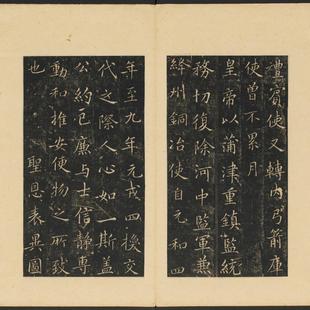 禮賓使又轉內弓箭庫
使曾不累月
皇帝以蒲津重鎮監統
務切復除河中監軍兼
絳州銅冶使自元和四
年至九年元戎四換交
代之際人心如一斯蓋
公約己廉与士信靜專
動和推安便物之所致
也　聖恩表異圖